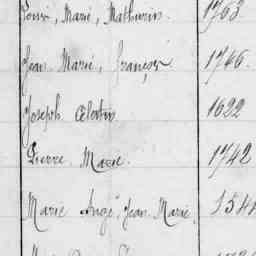 Louis, Marie, Mathurin. 1763.
Jean Marie, François 1746.
Joseph 1622
Pierre Marie. 1742
Marie Ange, Jean Marie, 1544